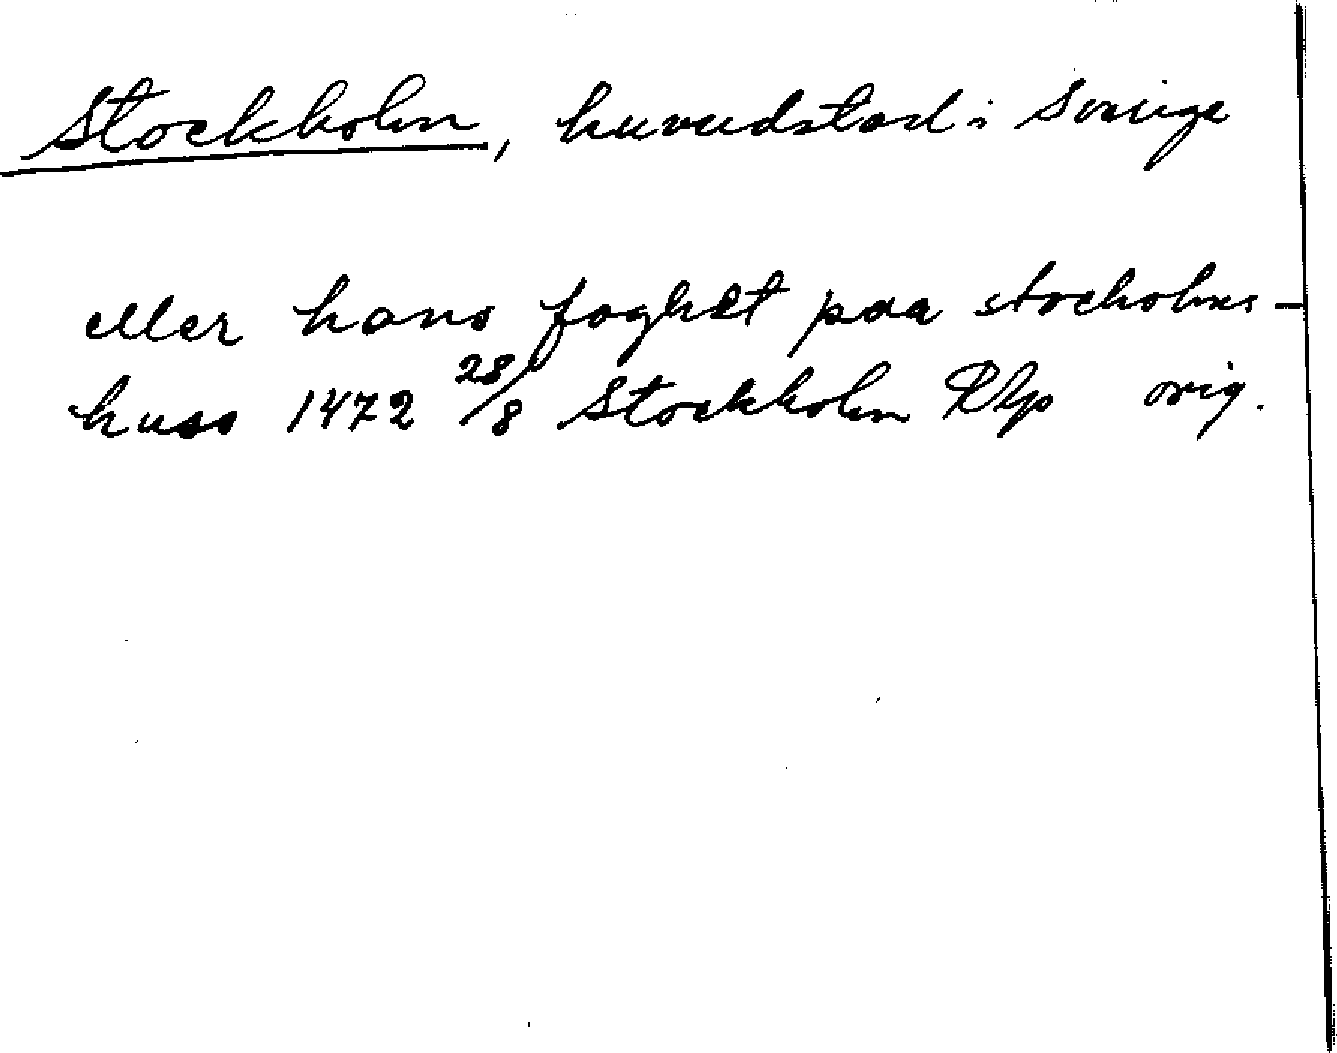 Stockholm, huvudstad i Sverige
eller hans foghet paa stocholms-
huss 1472 28/8 Stockholm RAp orig.